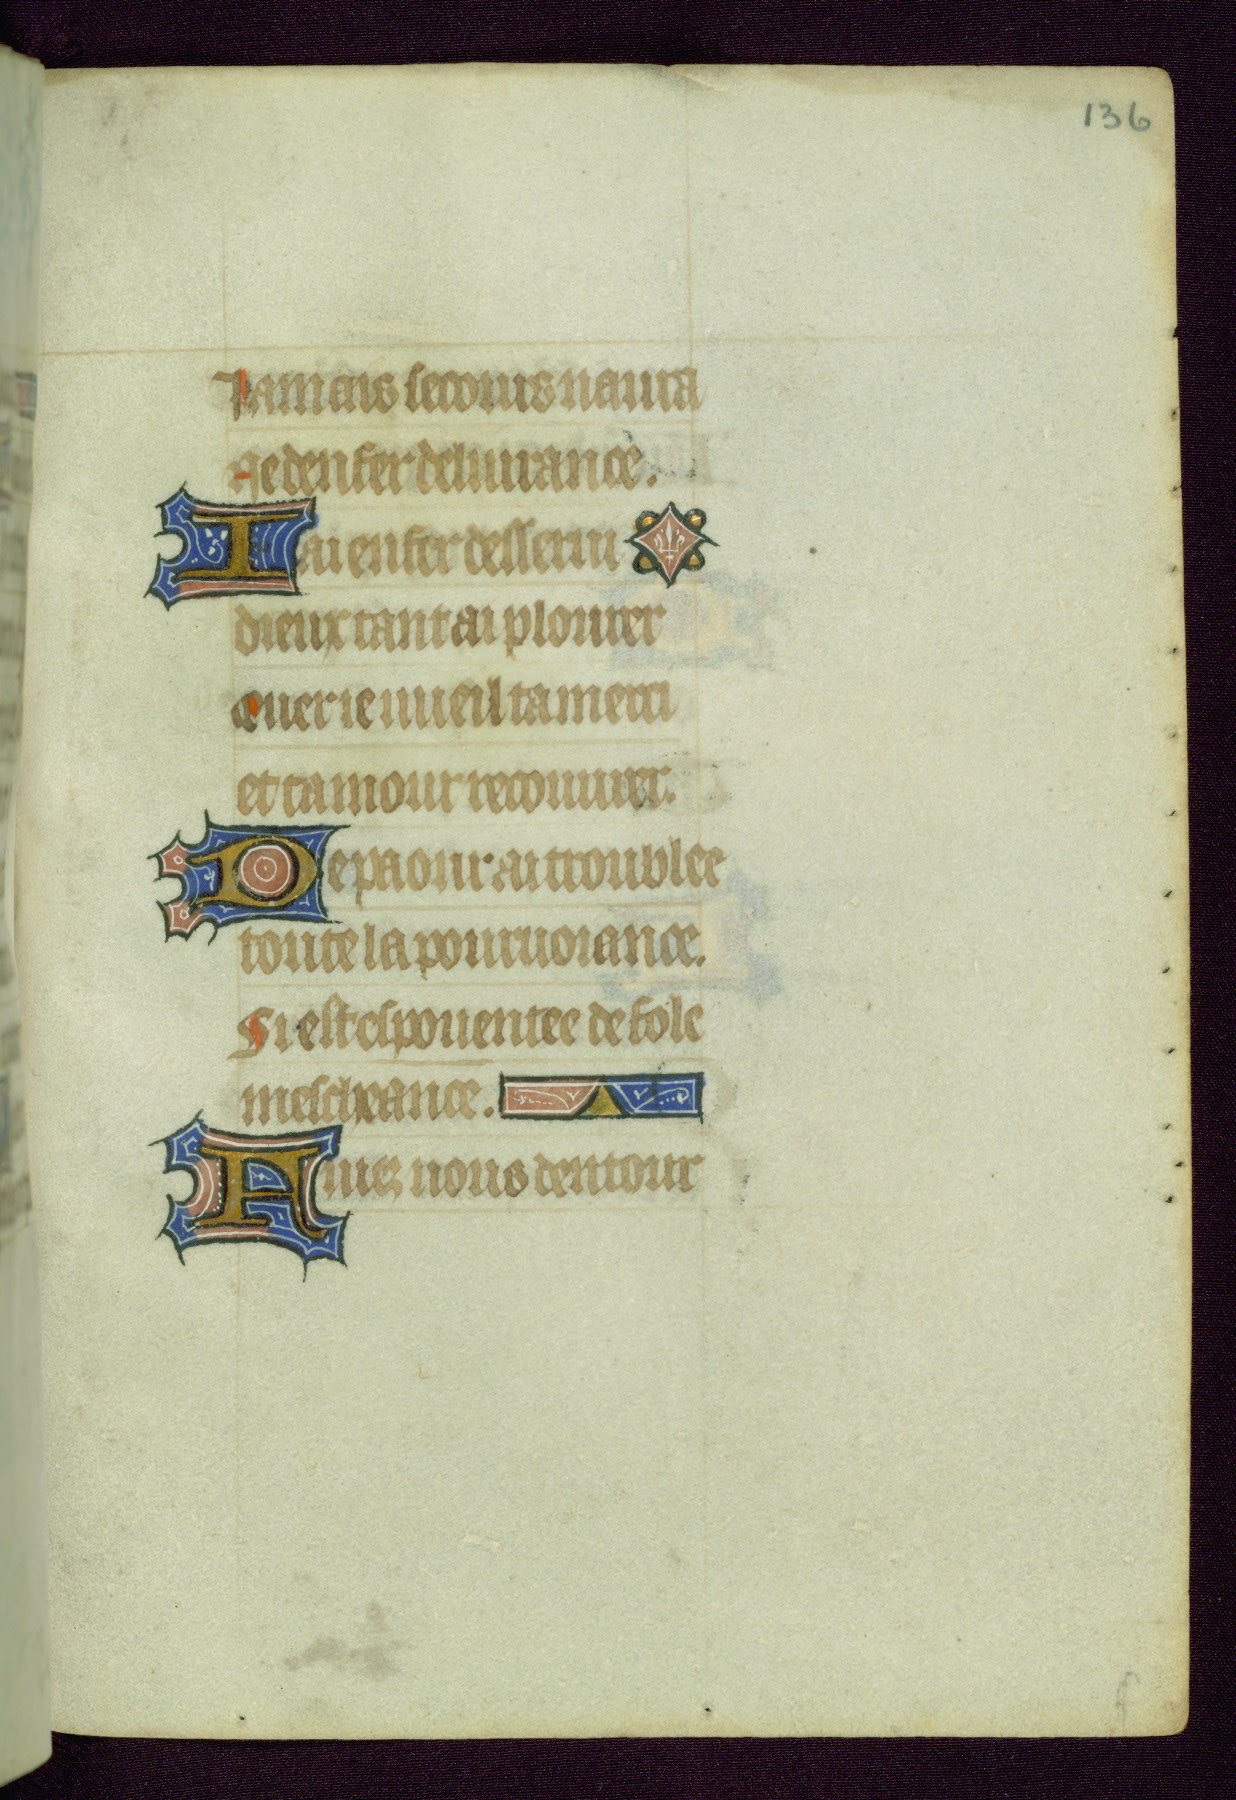 136
Jamais secours naura
qe denfer deliurance.
Jai enfer desserui
dieux tant ai plourer
Quer ie uueil ta merci
et tamour recouurer.
De paour ai troublee
toute la pouruoiance.
Si est espouentee de fole
mescheance.
Auez nous dentour